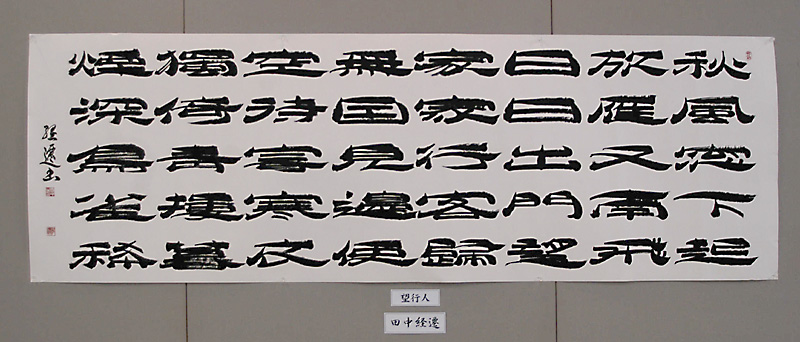 秋風窓下起
旅雁又南飛
日日出門望
家家行客歸
無因見邊使
空待寄寒衣
獨倚青樓暮
煙深鳥雀稀
経遷書
望行人
田中経遷